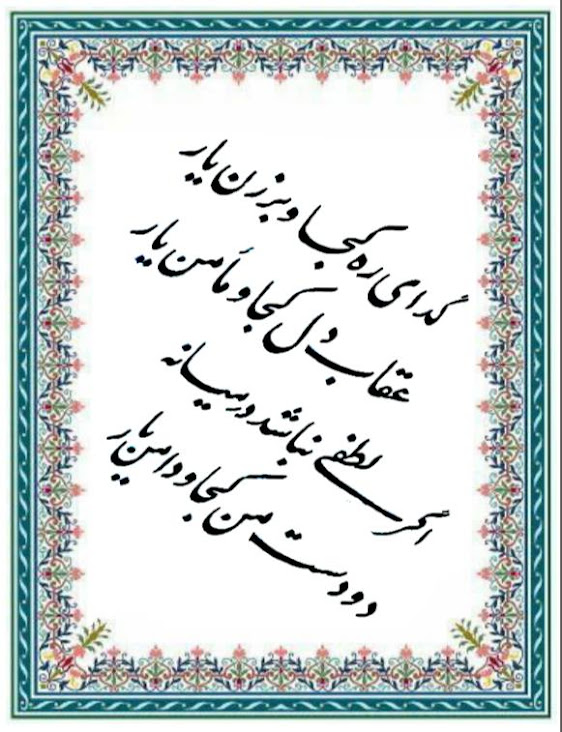 گدای ره کجا و برزن یار
عقاب دل کجا و مأمن یار
اگر لطفی نباشد در میانه
دو دست من کجا و دامن یار